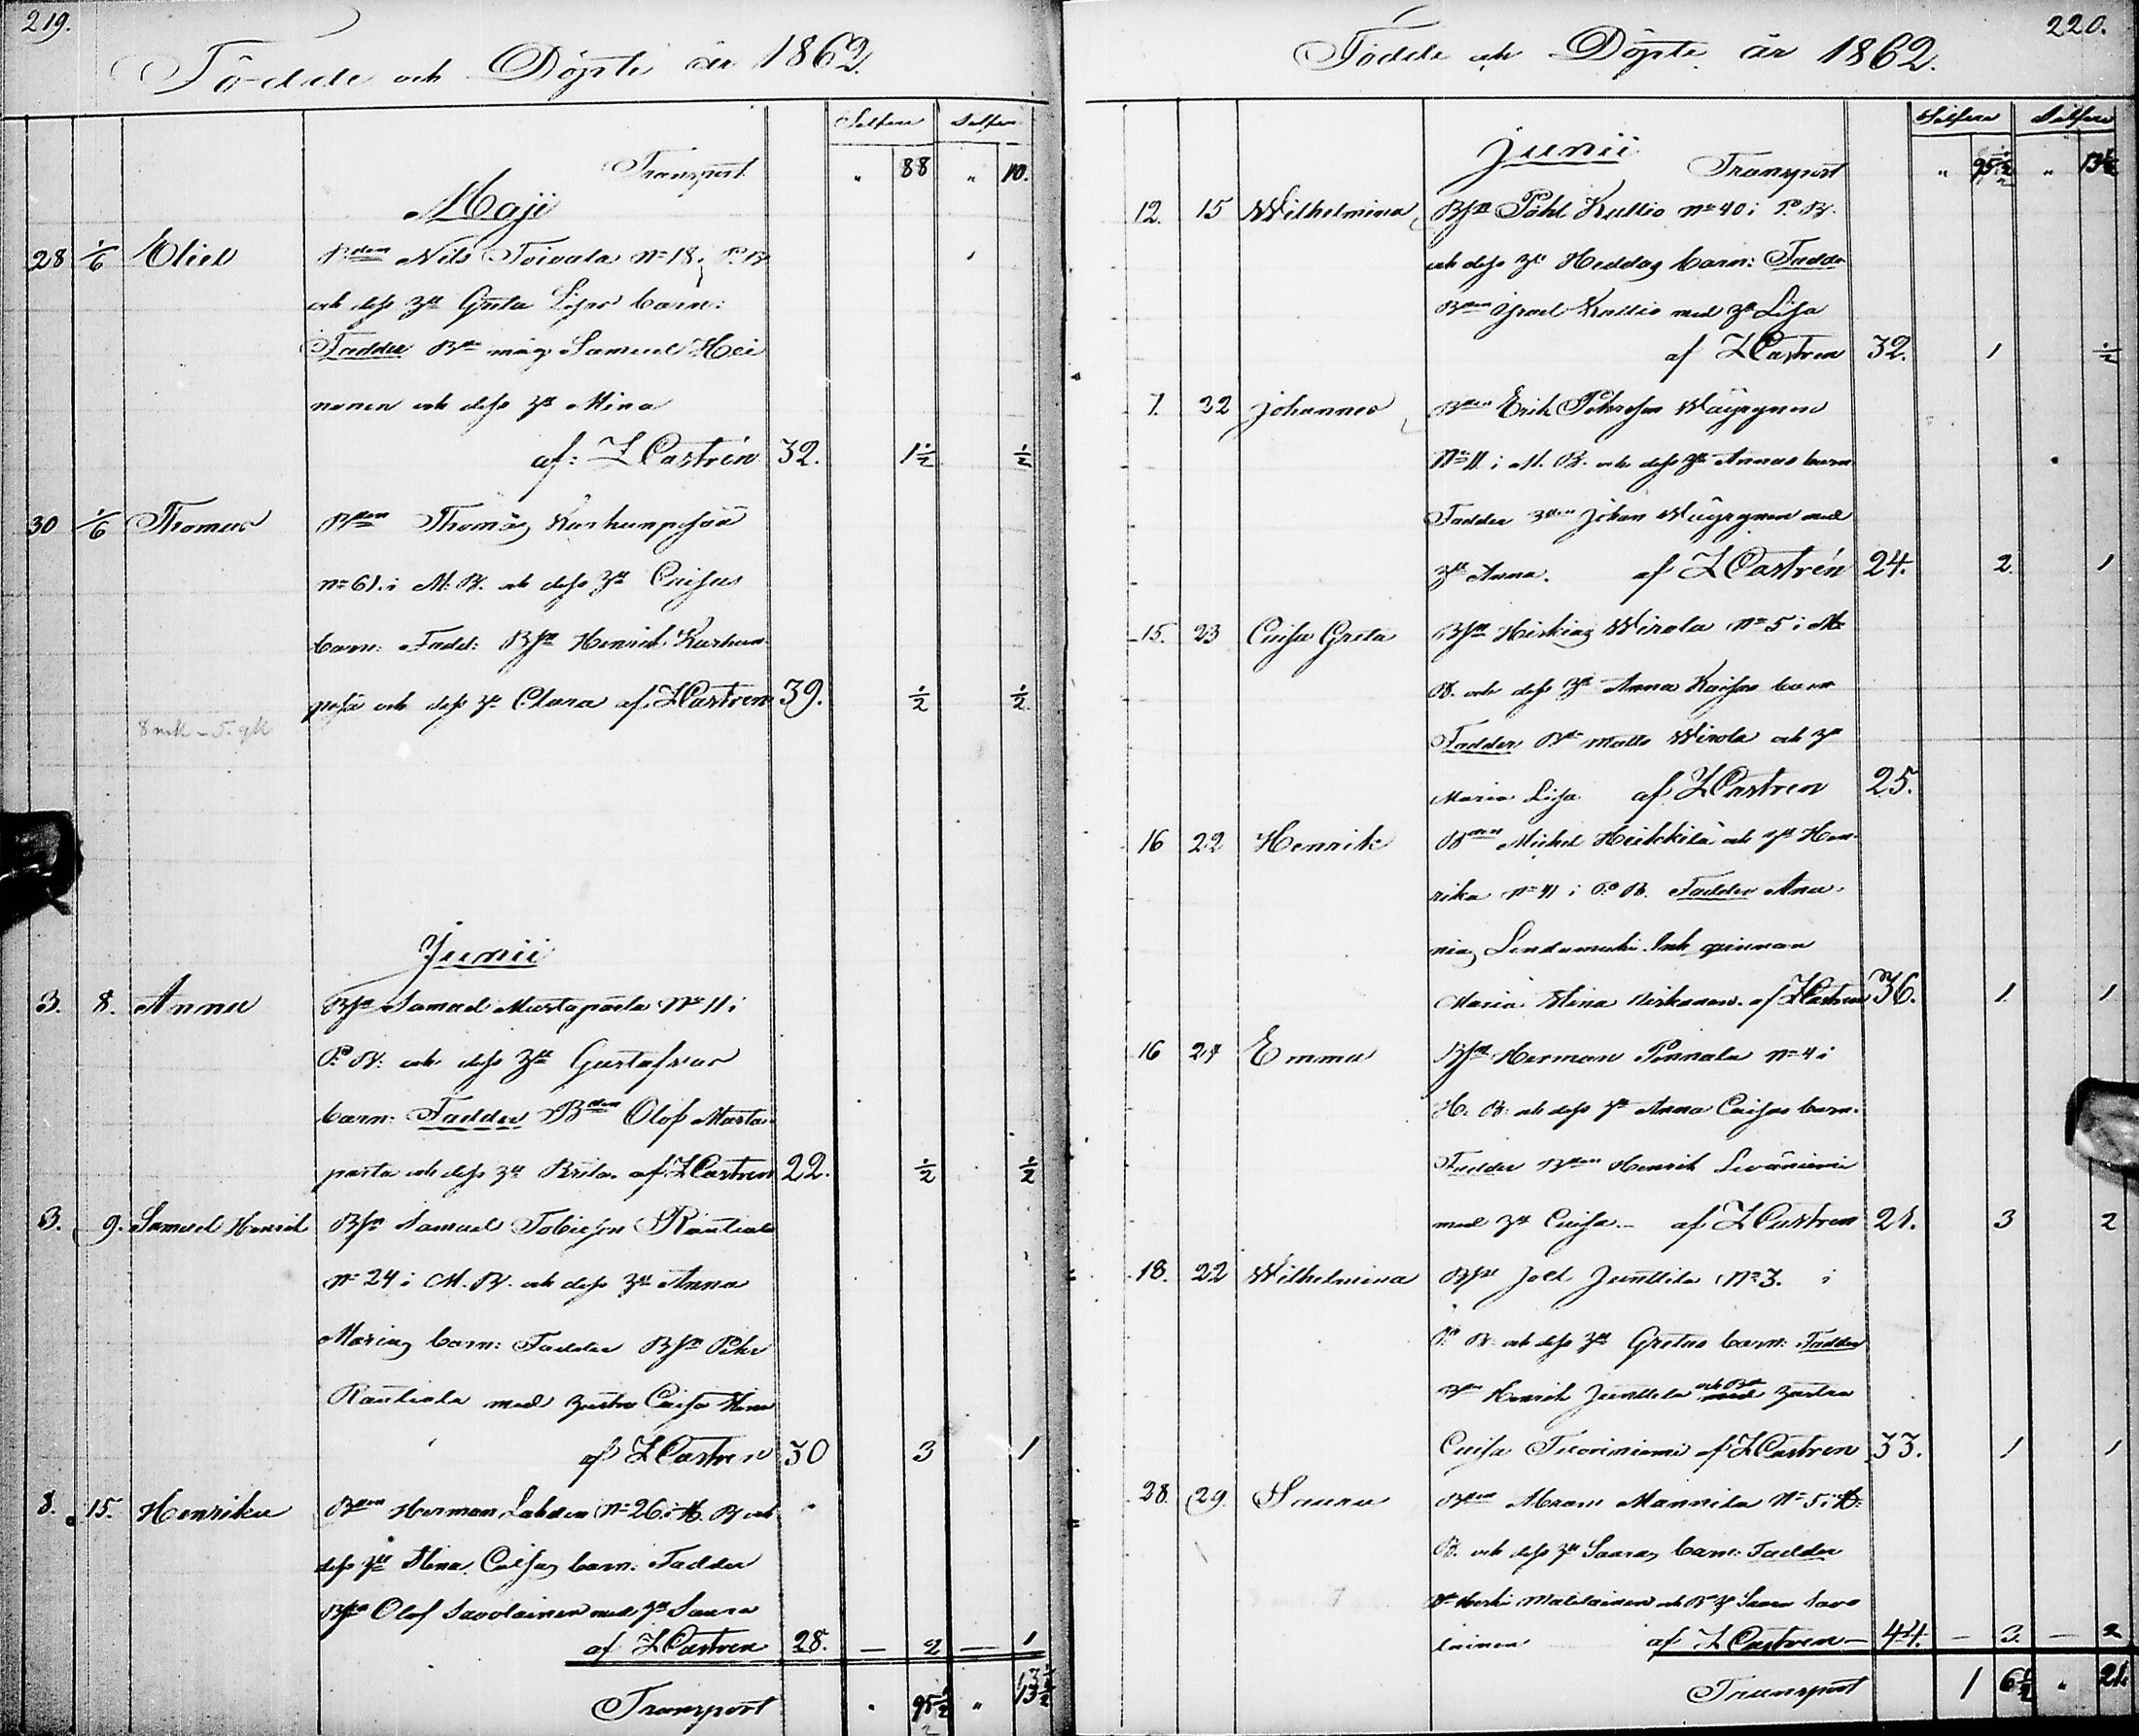 219.
Födde och Döpte år 1862.
Silfver Silfver
Transport " 88 " 10.
Maji
28 1/6 Eliel Bden Nils Toivala No 18 i P. B.
och dess hu Greta Lisas barn:
Fadder Bde måg Samuel Hei
nonen och dess hu Mina
af: Z Castrén 32. 1 1/2 1/2
30 1/6 Thomas Bden Thomas Karhunpesä
no 61. i M. B. och dess hu Caisas
barn: Fadd: Bsn Henrik Karhun
pesä och dess hu Clara af Z Castren 39. 1/2 1/2
Junii
3. 8. Anna Bsn Samuel Mustaparta No 11 i
P. B. och dess hu Gustafvas
barn: Fadder Bden Olof Musta-
parta och dess hu Brita. af Z Castren 22. 1/2 1/2
3. 9. Samuel Henrik Bsn Samuel Tobiesson Rautiala
no 24 i M. B. och dess hu Anna
Marias barn: Fadder Bsn Pehr
Rautiala med hustru Caisa Stina
af Z Castren 30 3 1
8. 15. Henrika Bden Herman Lahden No 26 i H. B och
dess hu Stina Caisas barn: Fadder
Bsn Olof Savolainen med hu Saara
af Z Castren 28. — 2 — 1
Transport " 95 1/2 " 13 1/2
220.
Födde och Döpte år 1862.
Silfver Silfver
Junii
Transport " 95 1/2 " 13 1/2
12. 15 Wilhelmina Bsn Påhl Kallio no 40 i P. B.
och dess hu Heddas barn: Fadder
Bden Israel Kallio med hu Lisa
af Z Castren 32. 1 1/2
7. 22 Johannes Bden Erik Pehrsson Wäyrynen
No 11 i M. B. och dess hu Annas barn
Fadder Bden Johan Wäyrynen med
hu Anna. af Z Castrén 24. 2. 1
15. 23 Caisa Greta Bsn Hiskias Wirola No 5 i M.
B. och dess hu Anna Kaisas barn
Fadder Bde Matts Wirola och hu
Maria Lisa af Z Castren 25.
16 22 Henrik Bden Michel Heikkilä och hu Hen-
rika no 41 i P. B. Fadder Ana-
nias Lendumuki Inh qvinnan
Maria Stina Niskanen. af Z Castren 36. 1. 1
16 24 Emma Bsn Herman Pennala no 4 i
H. B. och dess hu Anna Caisas barn.
Fadder Bden Henrik Leväniemi
med hu Caisa. — af Z Castren 21. 3 2
18. 22 Wilhelmina Bsn Joel Junttila No 3. i
P. B. och dess hu Gretas barn: Fadder
Bden Henrik Junttila och Bde hustru
Caisa Tuoriniemi af Z Castren 33. 1 1
28. 29. Saara Bden Abram Mannila No 5 i H.
B. och dess hu Saaras barn: Fadder
Bde Herki Matilainen och B. hu Saara Savo
lainen af Z Castren — 44. — 3. — 2
Transport 1 6 1/2 " 21.